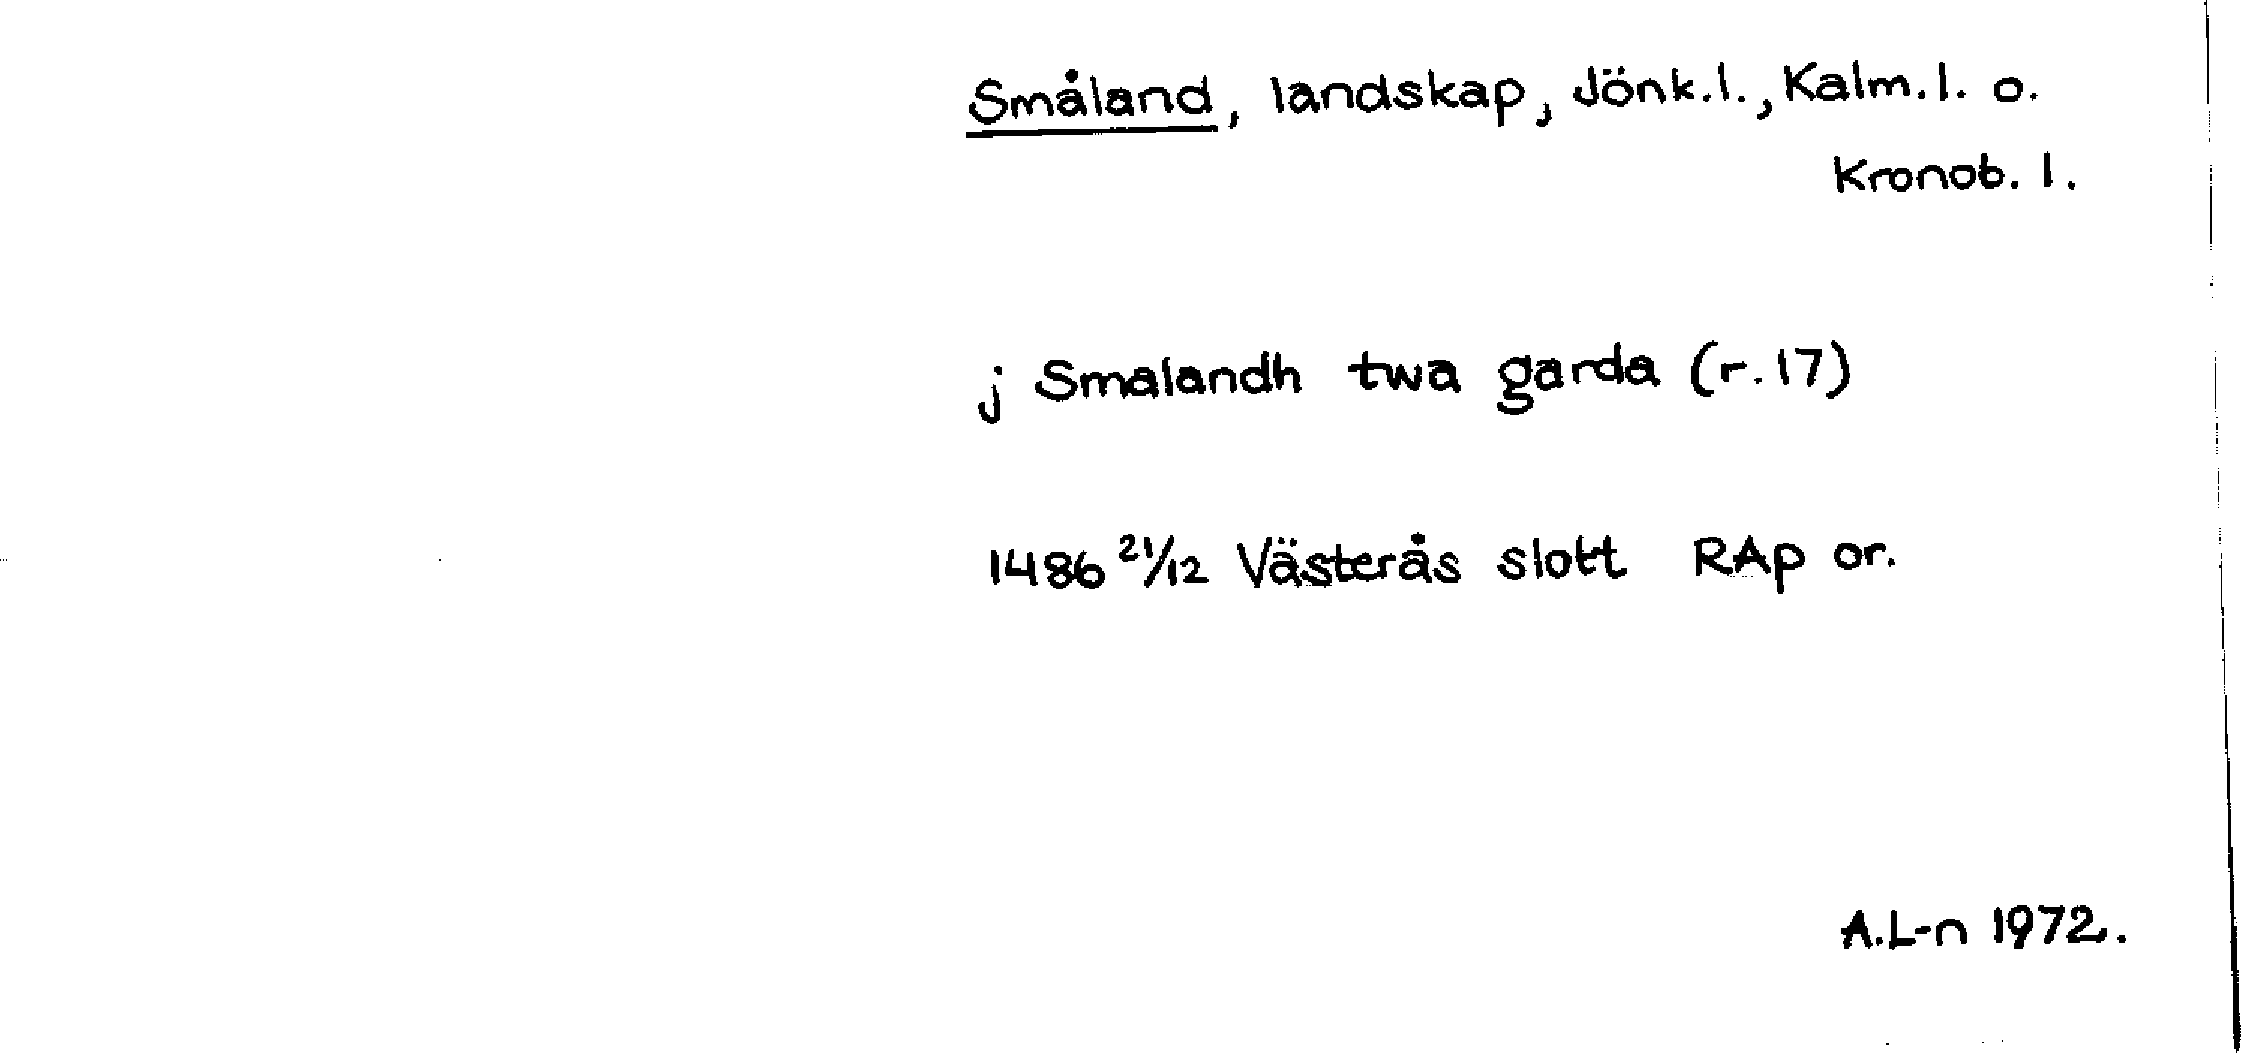 Småland, landskap, Jönk.l., Kalm.l. o.
Kronob. l.
j Smalandh twa garda (r.17)
1486 21/12 Västerås slott RAp or.
A.L-n 1972.